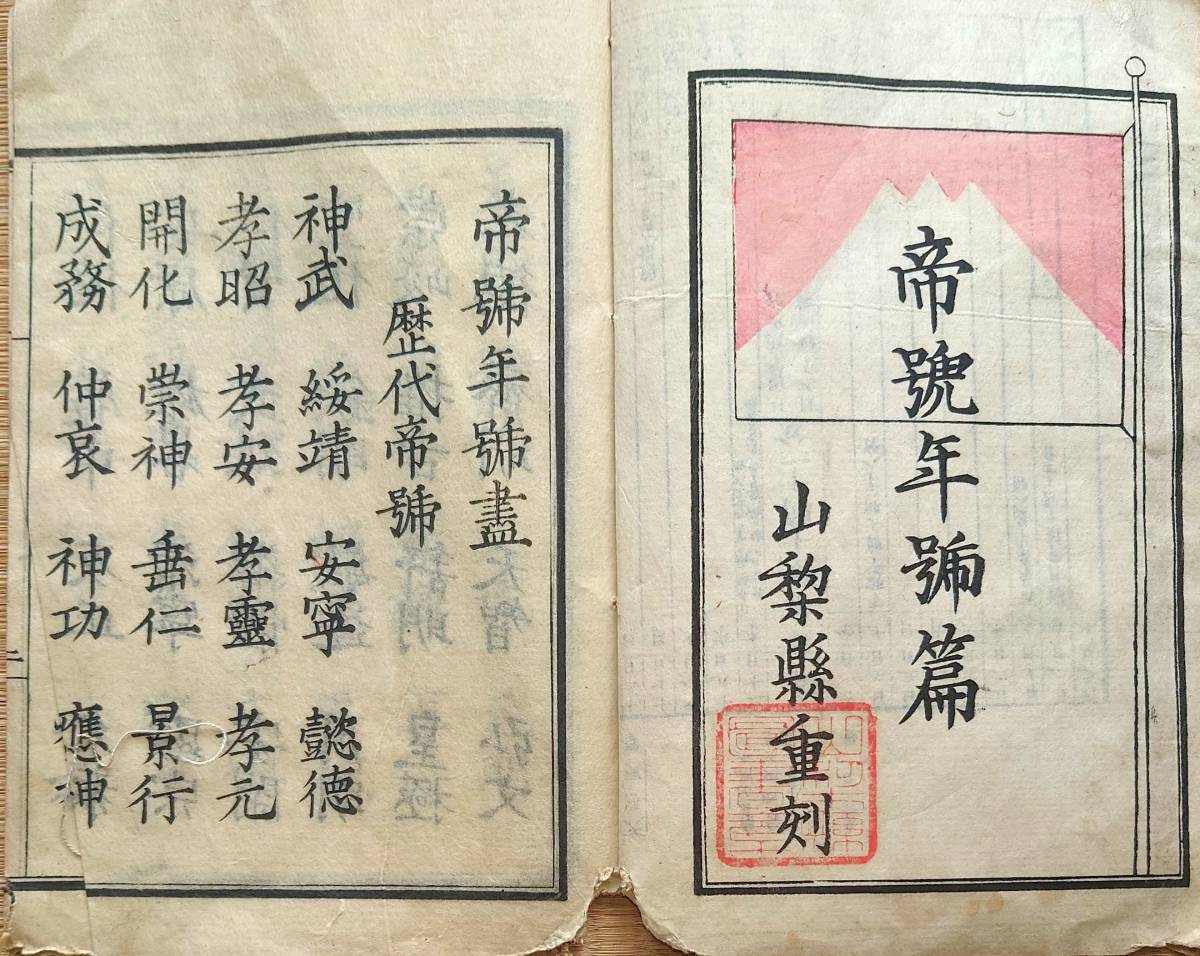 帝號年號篇
山梨縣重刻
帝號年號盡
歴代帝號
神武 綏靖 安寧 懿德
孝昭 孝安 孝靈 孝元
開化 崇神 垂仁 景行
成務 仲哀 神功 應神